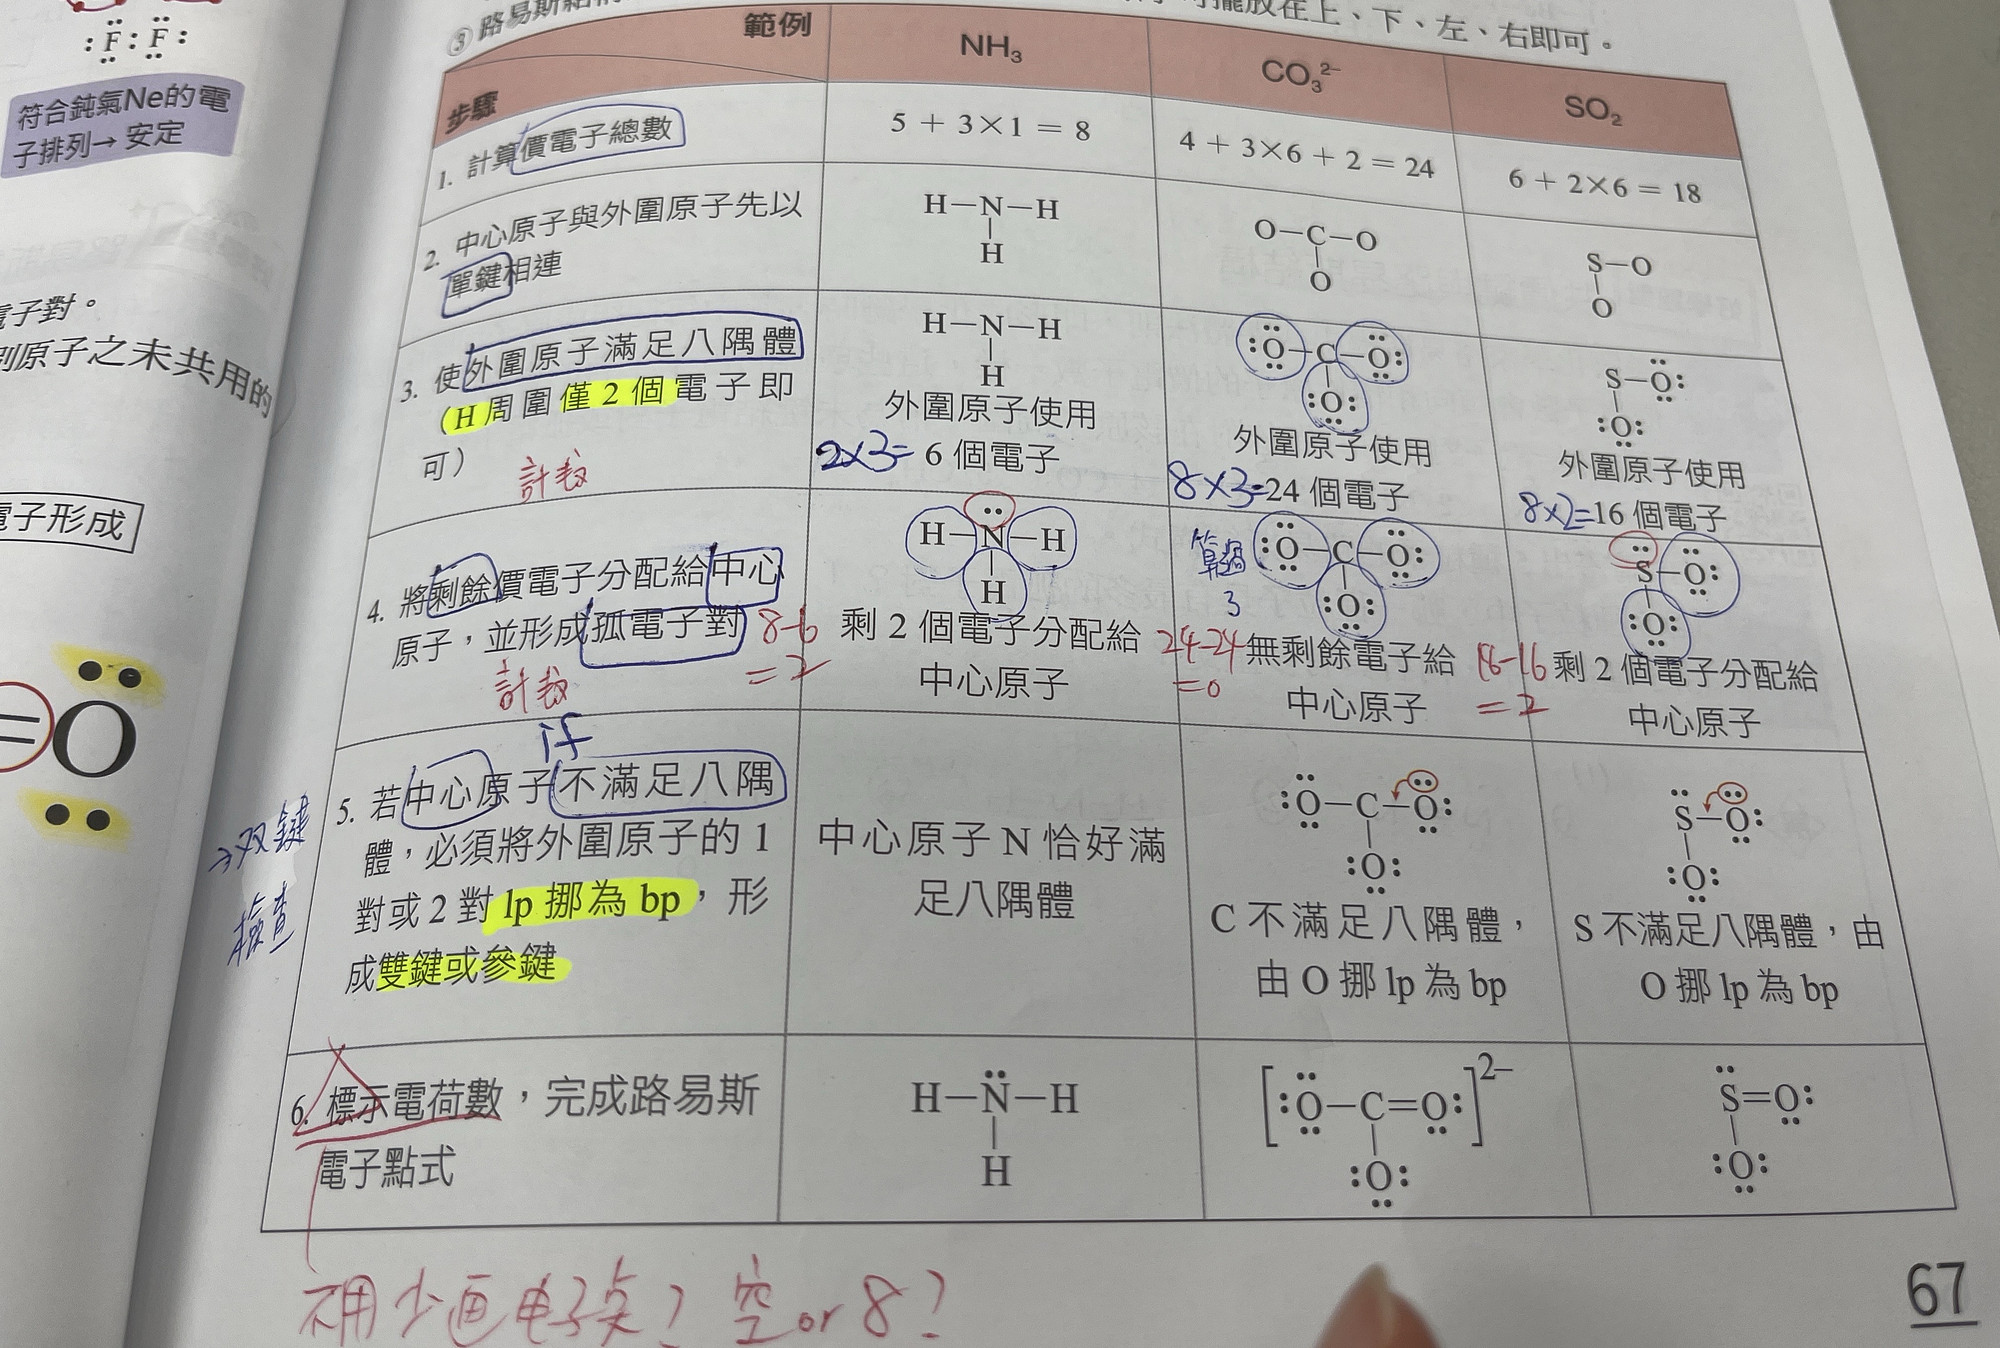 :F:F:
符合鈍氣Ne的電
子排列→安定
電子對。
原子之未共用的
電子形成
=O
③路易斯結
擺放在上、下、左、右即可。
範例
步驟
NH₃
CO₃²⁻
SO₂
1. 計算價電子總數
5 + 3×1 = 8
4 + 3×6 + 2 = 24
6 + 2×6 = 18
2. 中心原子與外圍原子先以
單鍵相連
H—N—H
H
O—C—O
O
S—O
O
3. 使外圍原子滿足八隅體
（H周圍僅2個電子即
可）
計數
H—N—H
H
外圍原子使用
2×3= 6 個電子
:O—C—O:
:O:
外圍原子使用
8×3=24 個電子
S—O:
:O:
外圍原子使用
8×2=16 個電子
4. 將剩餘價電子分配給中心
原子，並形成孤電子對
計數
H—N—H
H
8-6
=2
剩 2 個電子分配給
中心原子
算過
3
:O—C—O:
:O:
24-24
=0
無剩餘電子給
中心原子
S—O:
:O:
18-16
=2
剩 2 個電子分配給
中心原子
if
5. 若中心原子不滿足八隅
體，必須將外圍原子的 1
對或 2 對 lp 挪為 bp，形
成雙鍵或參鍵
→双鍵
檢查
中心原子 N 恰好滿
足八隅體
:O—C—O:
:O:
C 不滿足八隅體，
由 O 挪 lp 為 bp
S—O:
:O:
S 不滿足八隅體，由
O 挪 lp 為 bp
6. 標示電荷數，完成路易斯
電子點式
H—N—H
H
[:O—C=O:]²⁻
:O:
S=O:
:O:
不用少画电子矣? 空or 8?
67